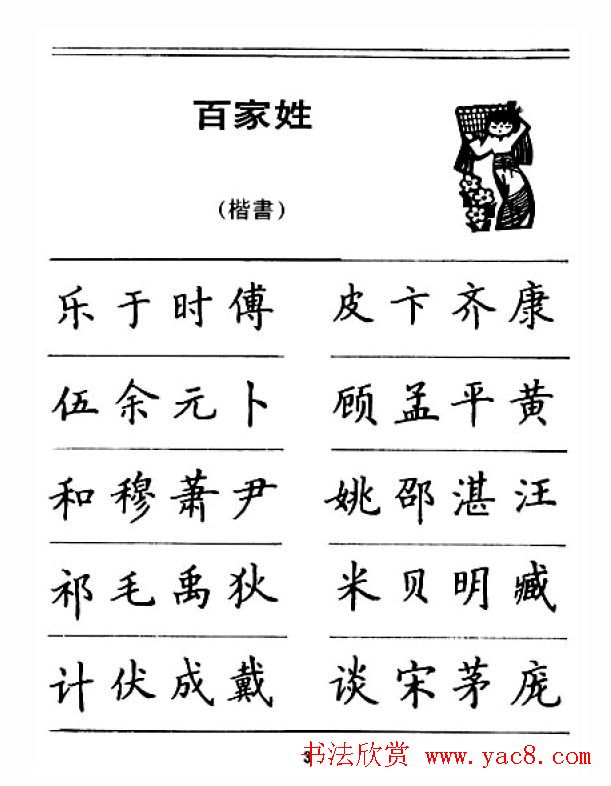 百家姓
(楷書)
乐于时傅 皮卞齐康
伍余元卜 顾孟平黄
和穆萧尹 姚邵湛汪
祁毛禹狄 米贝明臧
计伏成戴 谈宋茅庞
3
书法欣赏 www.yac8.com